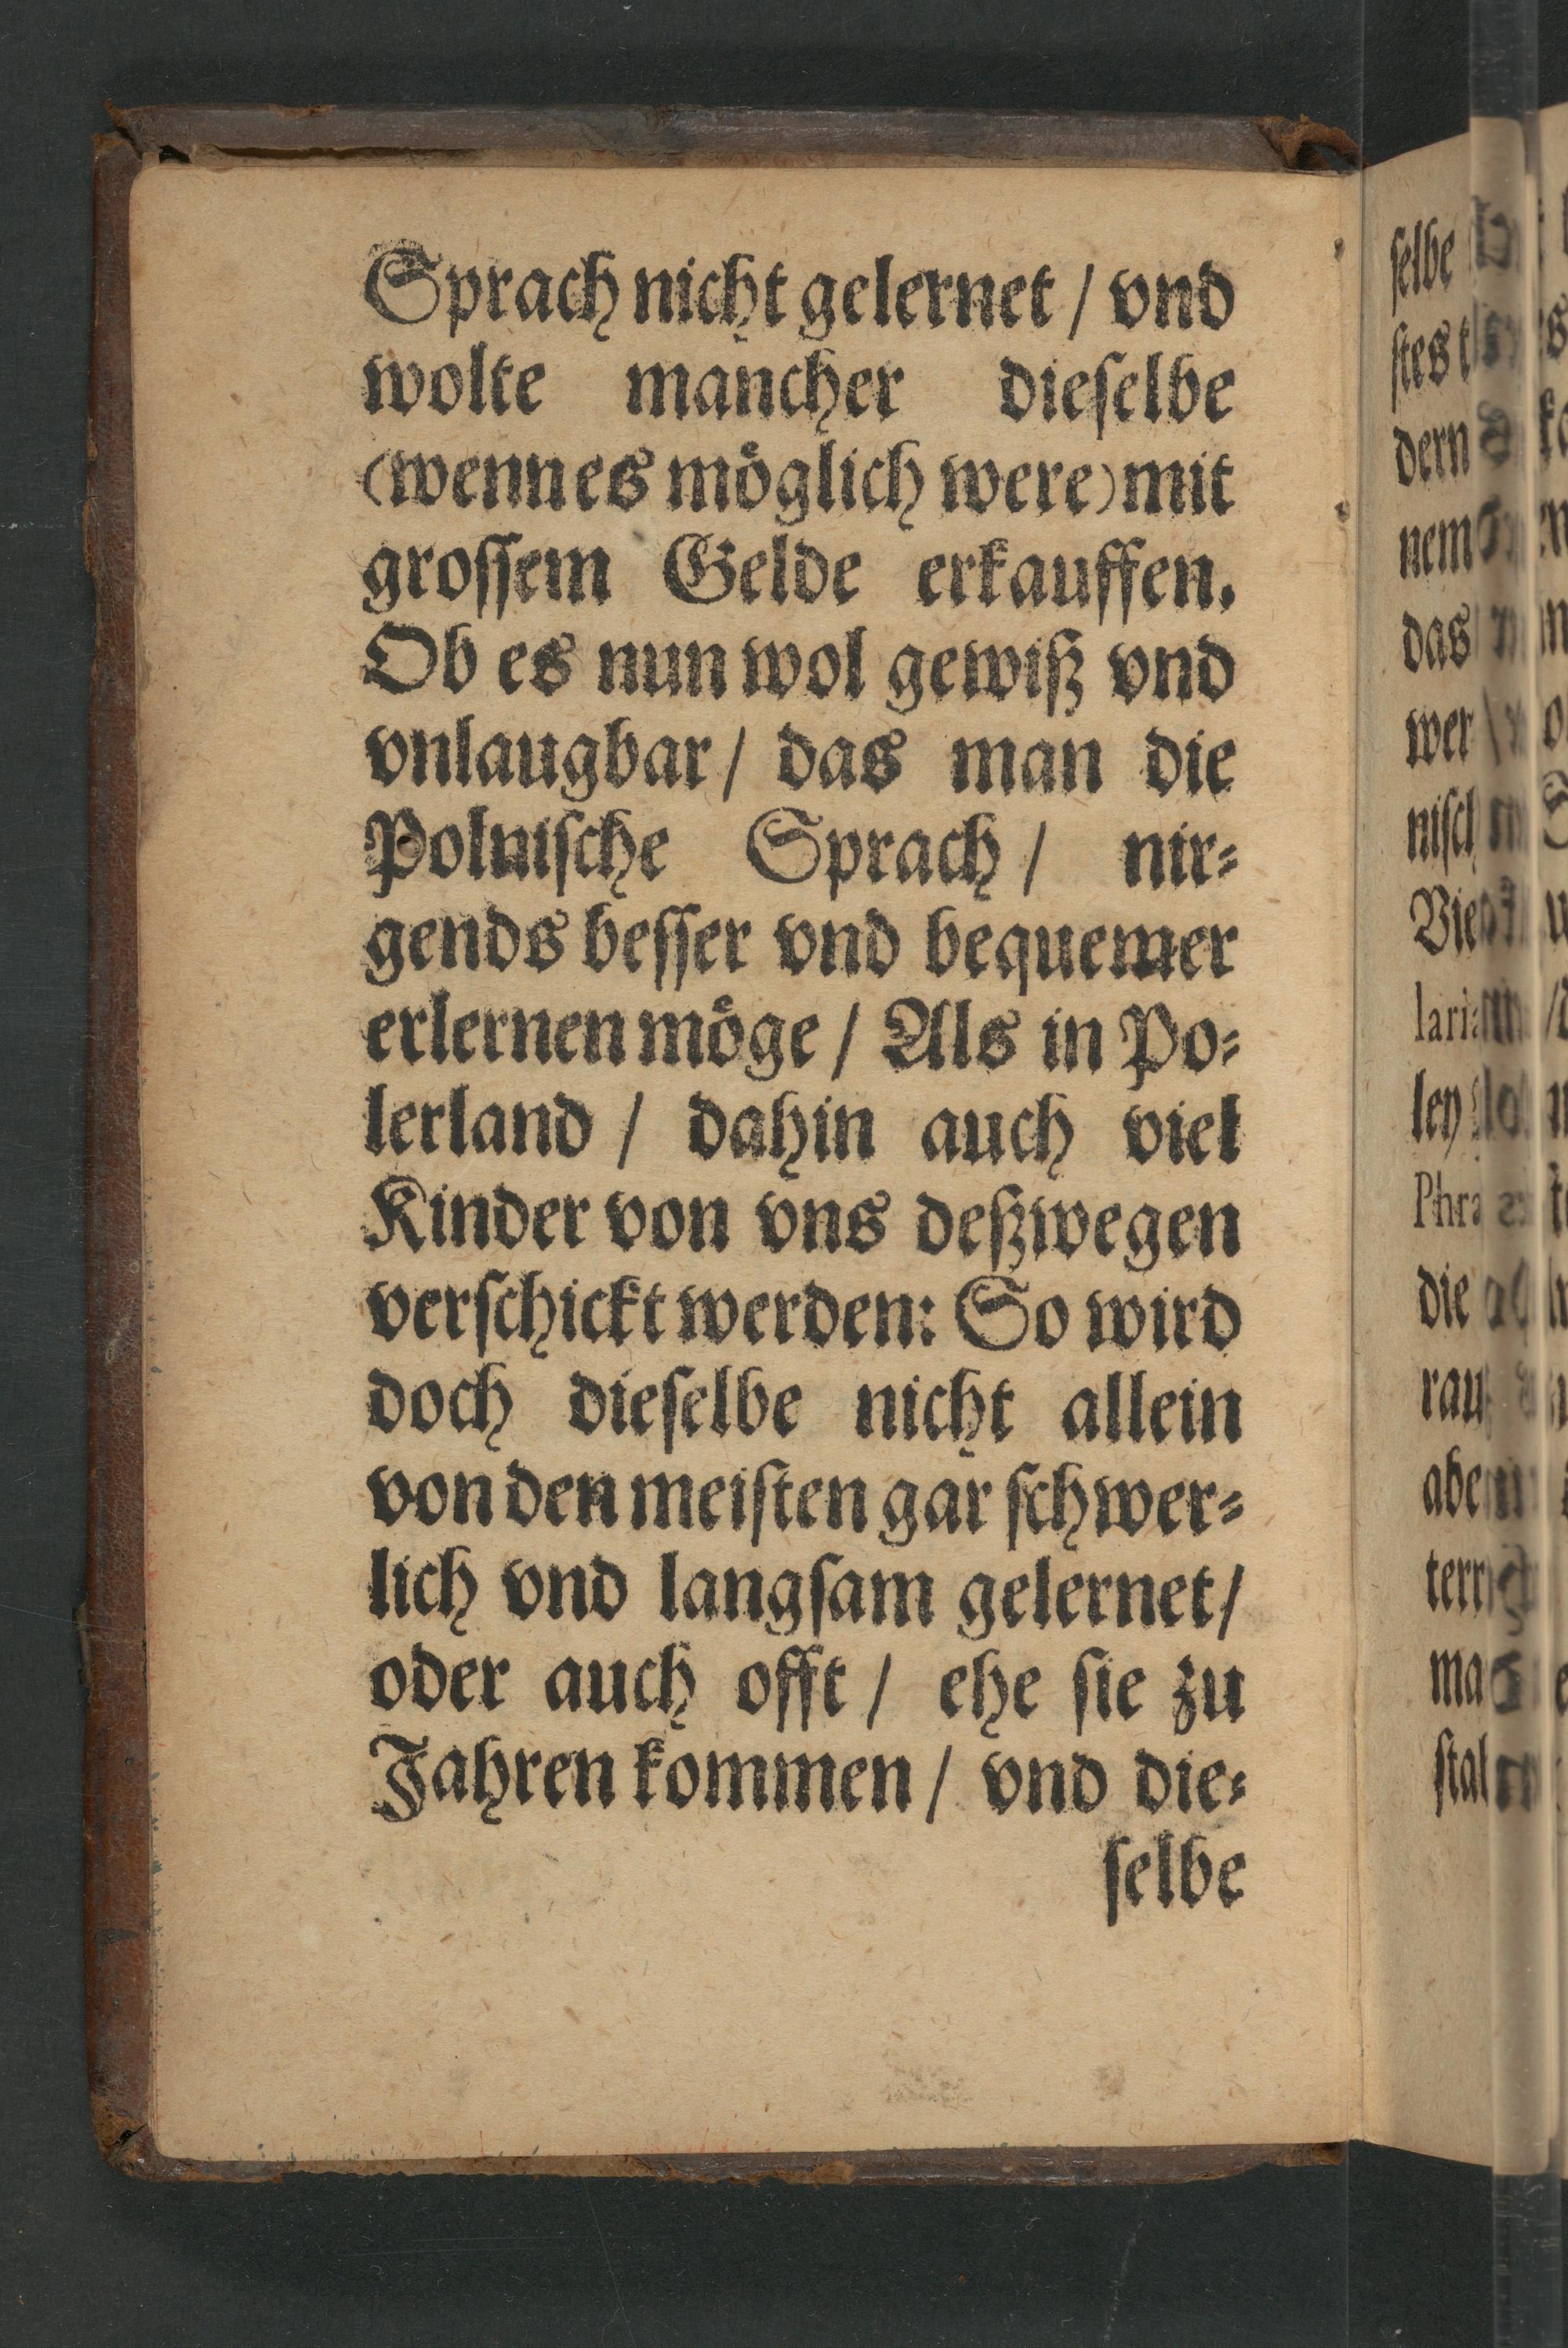 Sprach nicht gelernet / vnd
wolte mancher dieſelbe
(wenn es moͤglich were) mit
groſſem Gelde erkauffen.
Ob es nun wol gewiß vnd
vnlaugbar / das man die
Polniſche Sprach / nir⸗
gends beſſer vnd bequemer
erlernen moͤge / Als in Po⸗
lerland / dahin auch viel
Kinder von vns deßwegen
verſchickt werden: So wird
doch dieſelbe nicht allein
von den meiſten gar ſchwer⸗
lich vnd langſam gelernet /
oder auch offt / ehe ſie zu
Jahren kommen / vnd die⸗
ſelbe
ſelbe
dern
das
die